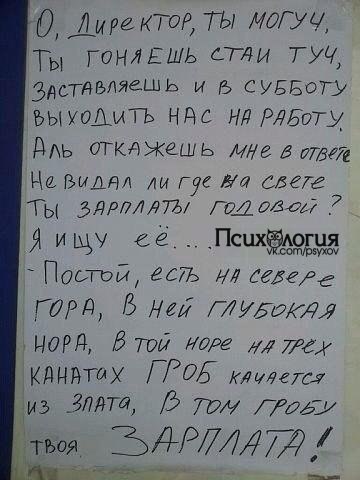 О, Директор, ты могуч,
Ты гоняешь стаи туч,
Заставляешь и в субботу
выходить нас на работу.
Аль откажешь мне в ответе
Не видал ли где на свете
Ты зарплаты годовой?
Я ищу её....
Психология
vk.com/psyxov
- Постой, есть на севере
гора, в ней глубокая
нора, в той норе на трёх
канатах ГРОБ качается
из злата, в том гробу
твоя ЗАРПЛАТА!